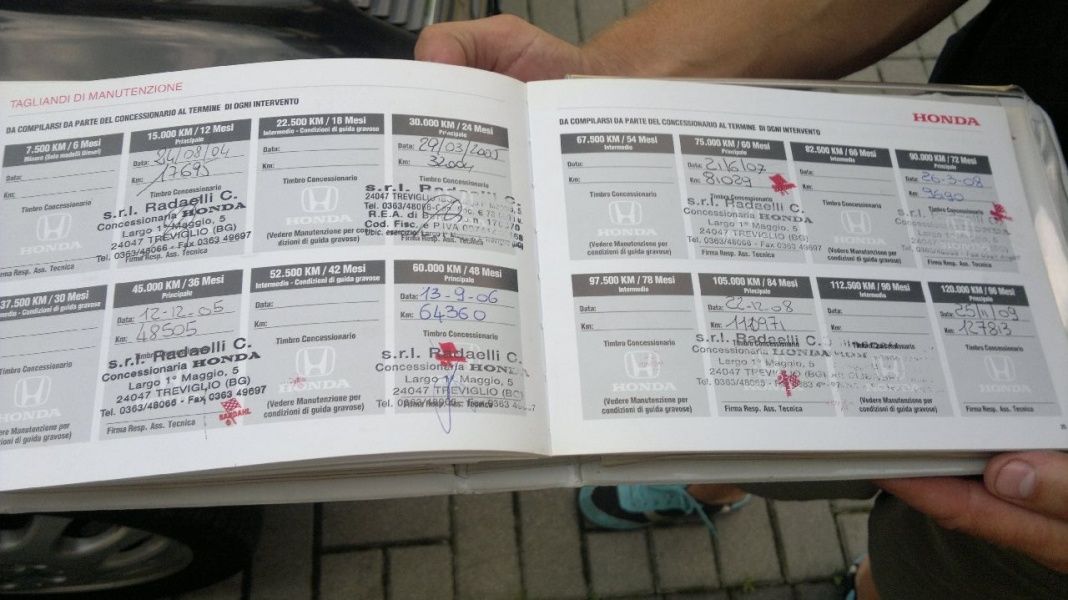 TAGLIANDI DI MANUTENZIONE
DA COMPILARSI DA PARTE DEL CONCESSIONARIO AL TERMINE DI OGNI INTERVENTO
7.500 KM / 6 Mesi
Data:
Km:
Timbro Concessionario
HONDA
Firma Resp. Ass. Tecnica
15.000 KM / 12 Mesi
Principale
Data: 24/08/04
Km: 17695
Timbro Concessionario
s.r.l. Radaelli C.
Concessionaria HONDA
Largo 1° Maggio, 5
24047 TREVIGLIO (BG)
Tel. 0363/48066 - Fax 0363 49697
Firma Resp. Ass. Tecnica
22.500 KM / 18 Mesi
Intermedio - Condizioni di guida gravose
Data:
Km:
Timbro Concessionario
HONDA
(Vedere Manutenzione per
condizioni di guida gravose)
30.000 KM / 24 Mesi
Principale
Data: 29/03/2005
Km:
Timbro Concessionario
s.r.l. Radaelli C.
24047 TREVIGLIO
Tel. 0363/48066
R.E.A. di
Cod. Fisc. e P.IVA
37.500 KM / 30 Mesi
Intermedio - Condizioni di guida gravose
Timbro Concessionario
HONDA
(Vedere Manutenzione per
condizioni di guida gravose)
45.000 KM / 36 Mesi
Principale
Data: 12-12-05
Km: 48505
s.r.l. Radaelli C.
Concessionaria HONDA
Largo 1° Maggio, 5
24047 TREVIGLIO (BG)
Tel. 0363/48066 - Fax 0363 49697
BARDAHL
Firma Resp. Ass. Tecnica
52.500 KM / 42 Mesi
Intermedio - Condizioni di guida gravose
Data:
Km:
Timbro Concessionario
HONDA
(Vedere Manutenzione per
condizioni di guida gravose)
60.000 KM / 48 Mesi
Principale
Data: 13-9-06
Km: 64360
Timbro Concessionario
s.r.l. Radaelli C.
Concessionaria HONDA
Largo 1° Maggio, 5
24047 TREVIGLIO (BG)
HONDA
DA COMPILARSI DA PARTE DEL CONCESSIONARIO AL TERMINE DI OGNI INTERVENTO
67.500 KM / 54 Mesi
Intermedio
Data:
Km:
Timbro Concessionario
HONDA
(Vedere Manutenzione per
condizioni di guida gravose)
75.000 KM / 60 Mesi
Principale
Data: 21/6/07
Km: 81029
Timbro Concessionario
s.r.l. Radaelli C.
Concessionaria HONDA
Largo 1° Maggio, 5
24047 TREVIGLIO (BG)
Tel. 0363/48066 - Fax 0363 49697
Firma Resp. Ass. Tecnica
82.500 KM / 66 Mesi
Intermedio
Data:
Km:
Timbro Concessionario
HONDA
(Vedere Manutenzione per
condizioni di guida gravose)
90.000 KM / 72 Mesi
Principale
Data: 26-3-08
Km:
Timbro Concessionario
Firma Resp. Ass. Tecnica
97.500 KM / 78 Mesi
Intermedio
Data:
Km:
Timbro Concessionario
HONDA
(Vedere Manutenzione per
condizioni di guida gravose)
105.000 KM / 84 Mesi
Principale
Data: 22-12-08
Km:
s.r.l. Radaelli C.
Concessionaria HONDA
Largo 1° Maggio, 5
24047 TREVIGLIO (BG)
Firma Resp. Ass. Tecnica
112.500 KM / 90 Mesi
Intermedio
Data:
Km:
HONDA
(Vedere Manutenzione per
condizioni di guida gravose)
120.000 KM / 96 Mesi
Principale
Data: 25/11/09
Km: 127813
Timbro Concessionario
HONDA
Firma Resp. Ass. Tecnica